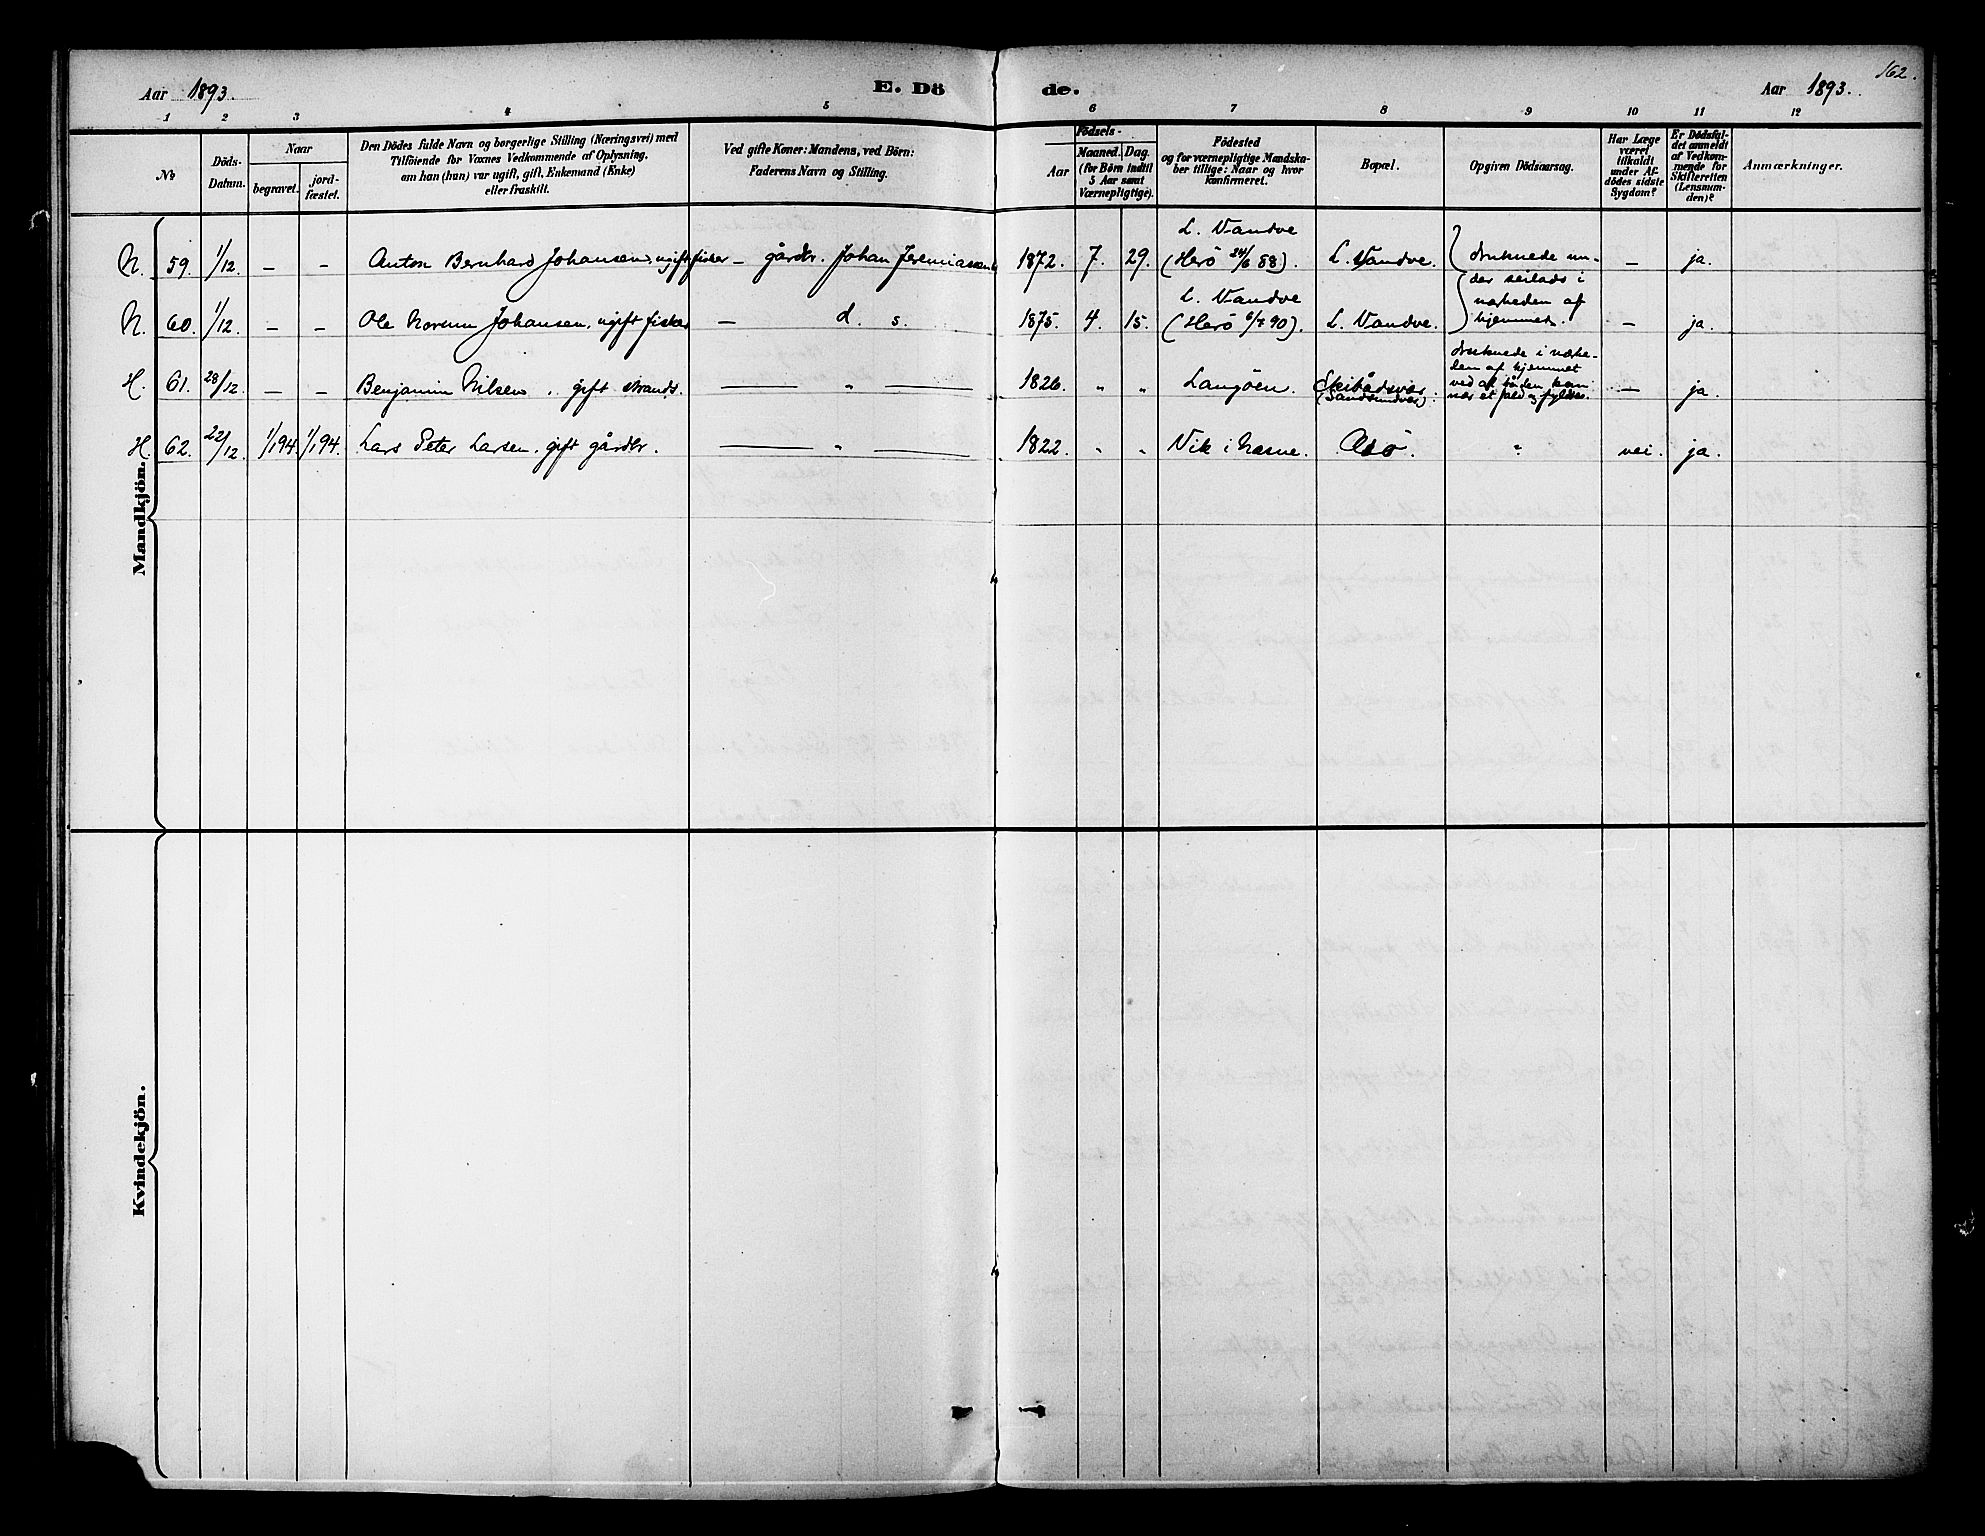 162.
Aar 1893. E. Dö de. Aar 1893.
1 2 3 4 5 6 7 8 9 10 11 12
№
Döds-Datum.
Naar
begravet.
jord-fæstet.
Den Dödes fulde Navn og borgerlige Stilling (Næringsvei) med
Tilföiende for Voxnes Vedkommende af Oplysning,
om han (hun) var ugift, gift, Enkemand (Enke)
eller fraskilt.
Ved gifte Koner: Mandens, ved Börn:
Faderens Navn og Stilling.
Födsels-
Aar
Maaned. Dag.
(for Börn indtil
5 Aar samt
Værnepligtige).
Födested
og for værnepligtige Mandska-
ber tillige: Naar og hvor
konfirmeret.
Bopæl.
Opgiven Dödsaarsag.
Har Læge
været
tilkaldt
under Af-
dödes sidste
Sygdom?
Er Dödsfal-
det anmeldt
af Vedkom-
mende for
Skifteretten
(Lensman-
den)?
Anmærkninger.
Mandkjön.
N. 59. 1/12. – – Anton Bernhard Johansen, ugift fisker – gårdbr. Johan Jeremiassen 1872. 7. 29. L. Vandve (Herö 24/6 88). L. Vandve. druknede un-
der seilads i
nærheden af
hjemmet. – ja.
N. 60. 1/12. – – Ole Johansen, ugift fisker – d. s. 1875. 4. 15. L. Vandve (Herö 6/7 90). L. Vandve. – ja.
H. 61. 28/12. – – Benjamin Nilsen, gift strands. — " — 1826. " " Langöen. Skibådsvær (Sandsundvær). druknede i nærhe-
den af hjemmet
ved at båden kan-
– ja.
H. 62. 22/12 1/1 94. 1/1 94. Lars Peter Larsen, gift gårdbr. — " — 1822. " " Vik i Næsne. Alsö. " nei. ja.
Kvindekjön.